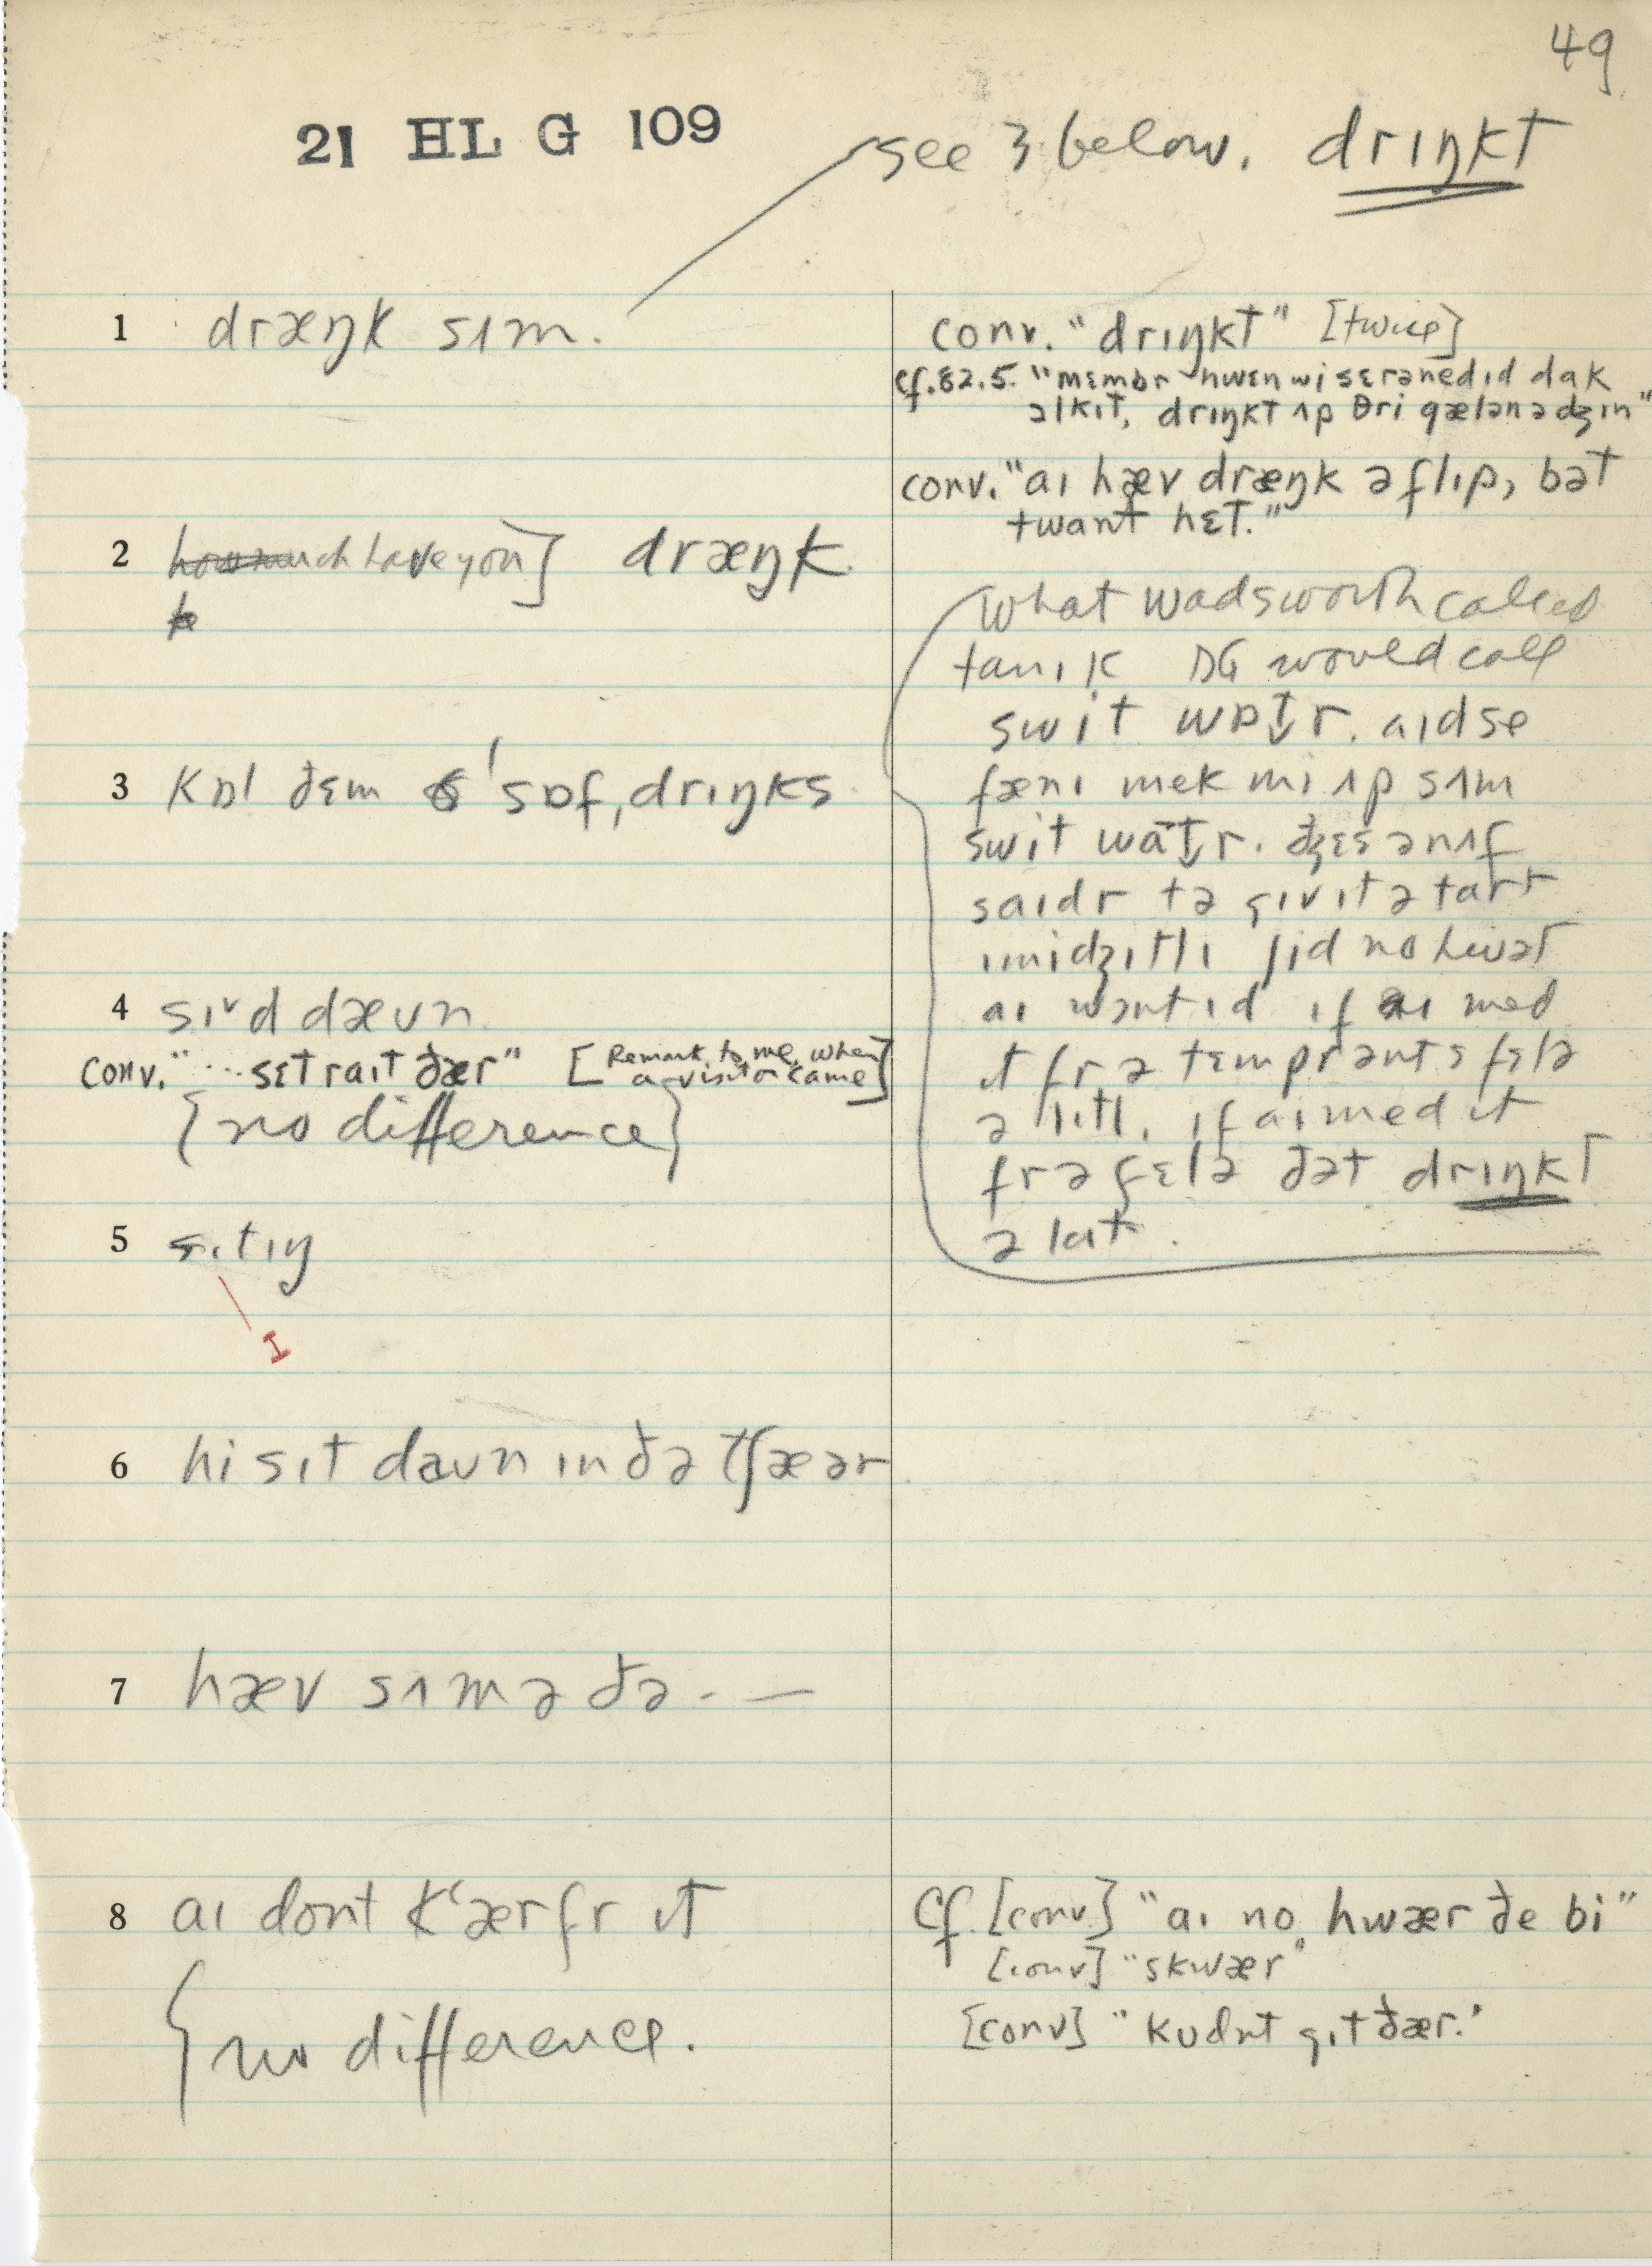 49
21 HL G 109
see 3 below. drɪŋkt
1 dræŋk sʌm.
conv. "drɪŋkt" [twice]
cf. 82.5. "mɛmbr hwɛn wi sɛrənedɪd dak
əlkɪt, drɪŋkt ʌp θri gælən ə dʒɪn"
conv. "aɪ hæv dræŋk ə flɪp, bət
twant hɛt."
2 how much have you] dræŋk.
3 kɒl ðɛm ˈsɒfˌdrɪŋks
What Wadsworth called
tanɪk DG would call
swit wɒt̬r. aɪd se
fænɪ mek mi ʌp sʌm
swit wat̬r. dʒɛs ənʌf
saɪdr tə gɪv ɪt ə tart
ʃid no hwət
aɪ wəntɪd ɪf aɪ med
ɪt fr ə tɛmprənts fɛlə
ə lɪtl. ɪf aɪ med ɪt
fr ə fɛlə ðət drɪŋkt
ə lat.
4 sɪˇd dæʊn
conv. "...sɛt raɪt ðær" [Remark to me when
a visitor came]
{no difference}
5 sɪtɪŋ
I
6 hi sɪt daʊn ɪn ðə tʃæər
7 hæv sʌm ə ðə - —
8 aɪ dont kʻær fr ɪt
{no difference.
Cf. [conv] "aɪ no hwær ðe bi"
[conv] "skwær"
[conv] "kʊdnt gɪt ðær."